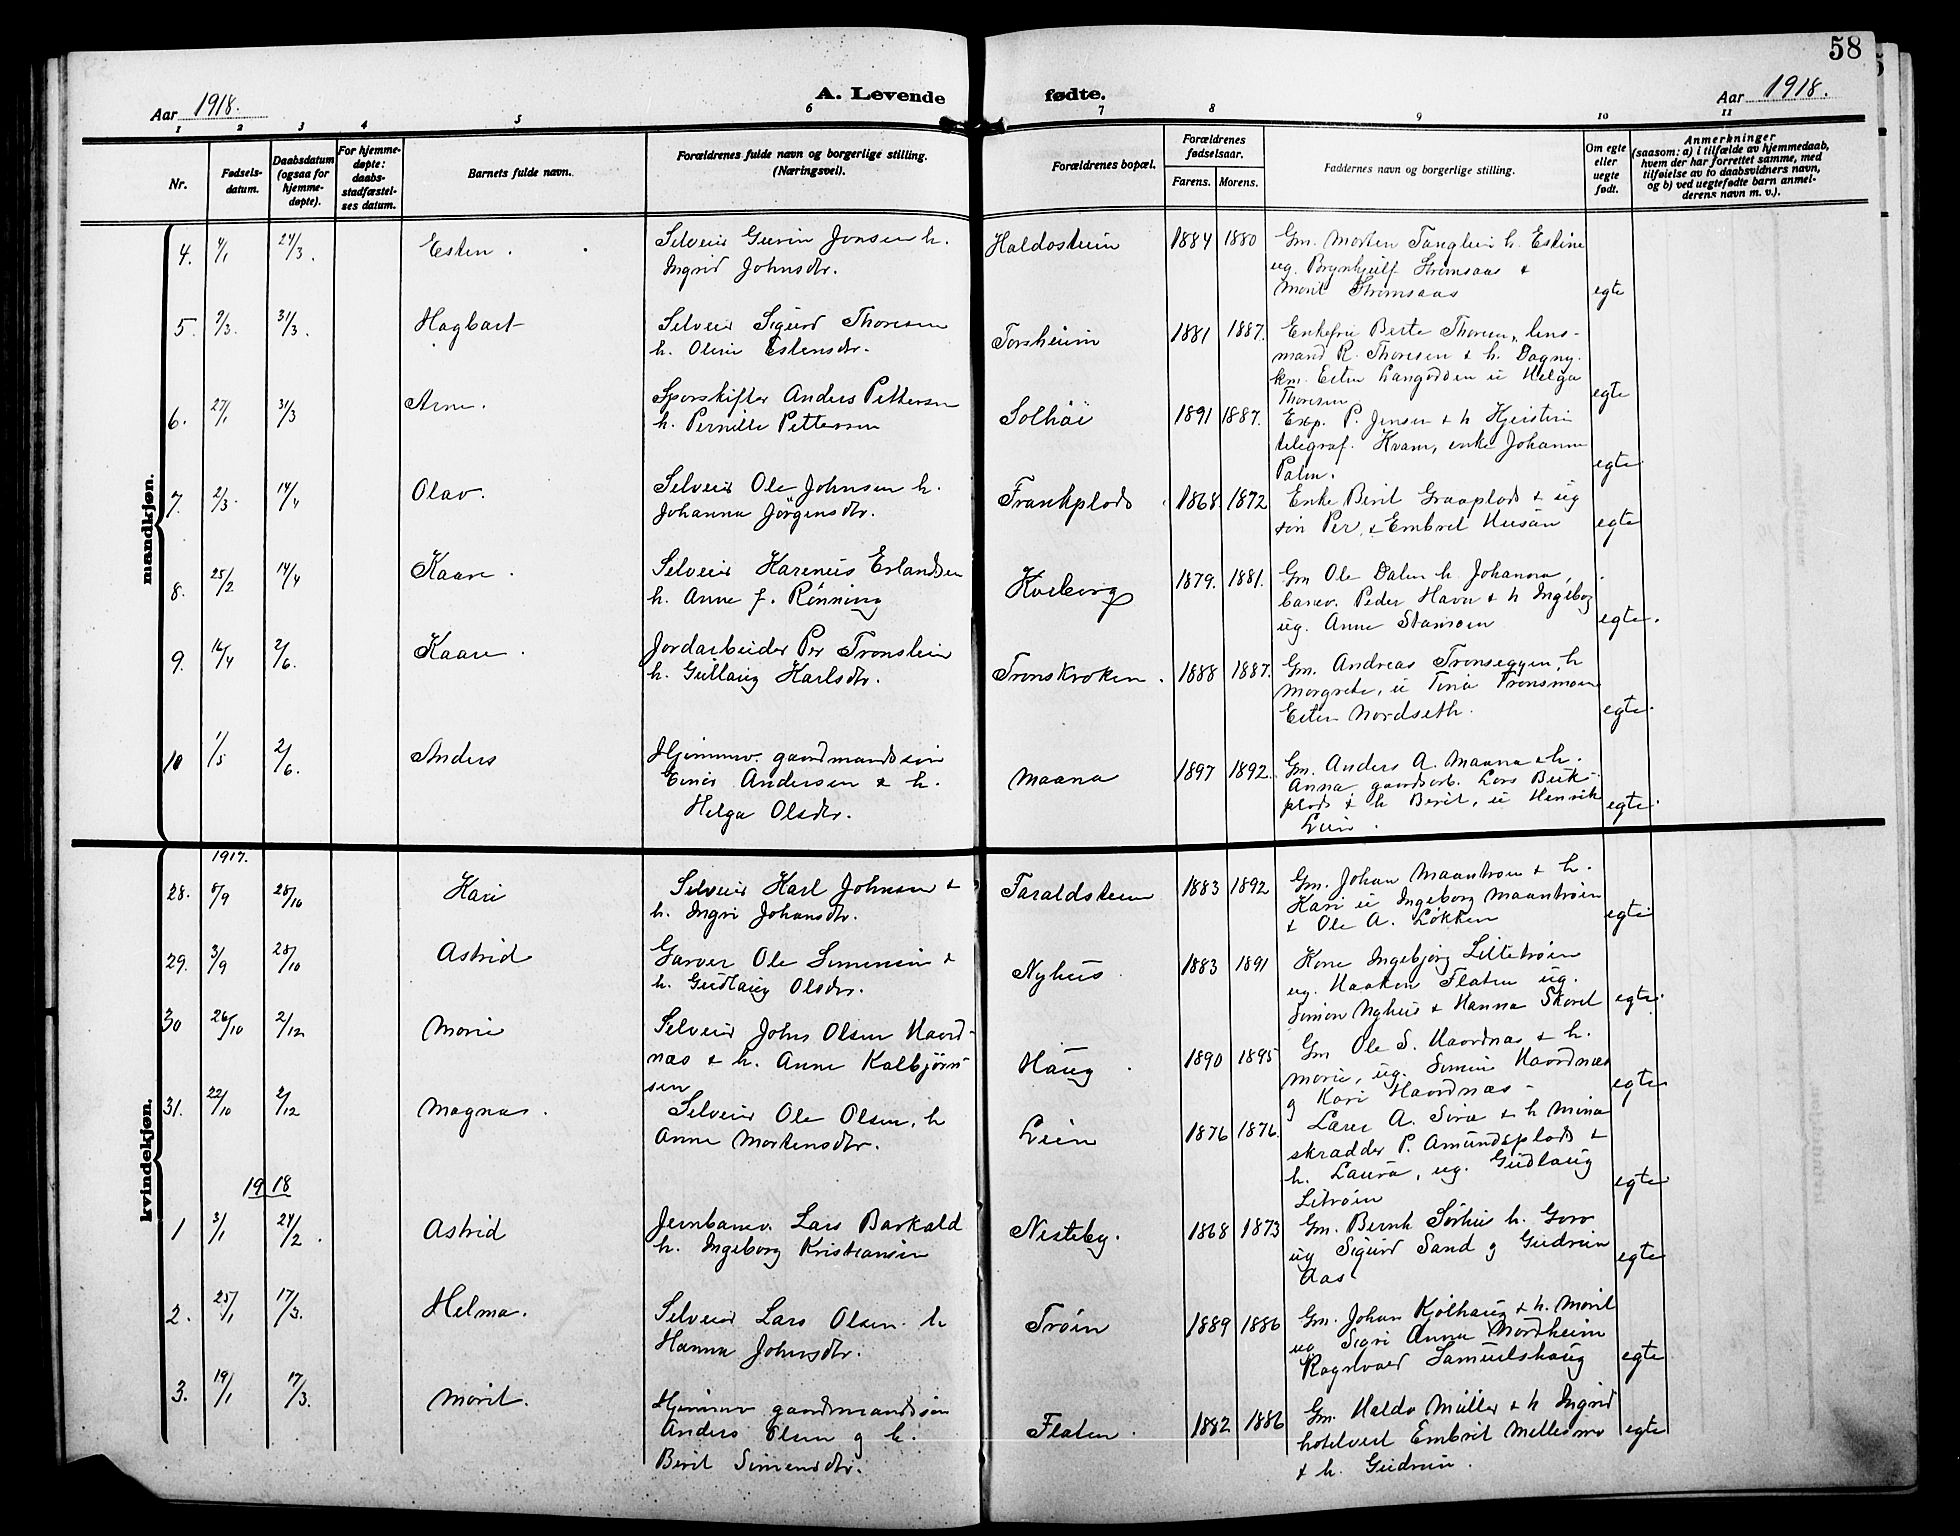 58
Aar 1918.
A. Levende
fødte.
Aar 1918.
1 2 3 4 5 6 7 8 9 10 11
Nr.
Fødsels-
datum.
Daabsdatum
(ogsaa for
hjemme-
døpte).
For hjemme-
døpte:
daabs-
stadfæstel-
ses datum.
Barnets fulde navn.
Forældrenes fulde navn og borgerlige stilling.
(Næringsvei).
Forældrenes bopæl.
Forældrenes
fødselsaar.
Farens. Morens.
Faddernes navn og borgerlige stilling.
Om egte
eller
uegte
født.
Anmerkninger
(saasom: a) i tilfælde av hjemmedaab,
hvem der har forrettet samme, med
tilføielse av to daabsvidners navn,
og b) ved uegtefødte barn anmel-
derens navn m. v.).
mandkjøn.
4. 4/1 24/3. Esten. Selveier Jonsen h. Haldostein 1884 1880 Gm. Morten h. Estine
Ingrid Johnsdtr. ug. Brynhjulf Strømsaas &
Marit Strømsaas egte
5. 9/3. 31/3. Hagbart Selveier Sigurd Thoresen Torsheim 1881 1887. Enkefru Berte Thoresen, lens-
h. Oline Estensdtr. mand R. Thoresen & h. Dagny.
km. Esten Langodden u Helga
Thoresen egte
6. 27/1 31/3 Arne. Sporskifter Anders Pettersen Solhöi 1891 1887. Exp. P. Jensen & h Kjerstin
h. Pernille Pettersen telegraf. Kvam, enke Johanne
Palm. egte
7. 2/3. 14/4 Olav. Selveier Ole Johnsen h. Trankplads 1868 1872 Enke Berit Graaplads & ug
Johanna Jörgensdtr. sön Per, & Embret egte
8. 25/2 14/4 Kaare. Selveier Harenius Erlandsen Kveberg 1879. 1881. Gm Ole Dalen h. Johanna,
h. Anne f. Rönning banev. Peder Havn & h Ingeborg
ug. Anne Stamoen egte.
9. 16/4 2/6. Kaare. Jordarbeider Per Tronslien Tronskroken. 1888 1887. Gm. Andreas Tronseggen, h
h. Gullaug Karlsdtr. Margrete, u Tina Tronsmoen
Esten Nordseth. egte.
10 1/5 2/6. Anders Hjemmev. gaardmandssön Maana 1897 1892. Gm. Anders A. Maana & h.
Einar Andersen & h. Anna gaardsarb. Lars Bek-
Helga Olsdtr. plads & h Berit, u Henrik
Lien. egte.
kvindekjøn.
1917.
28. 8/9 28/10 Kari Selveier Karl Johnsen & Taraldsteen 1883 1892 Gm. Johan Maantrøen & h.
h. Ingri Johansdtr. Kari u Ingeborg Maantrøen
& Ole A. Løkken egte
29. 3/9 28/10 Astrid Garver Ole Simensen & Nyhus. 1883 1891 Kone Ingebjørg Lilletrøen
h. Gudlaug Olsdtr. ug. Haaken Flaten ug.
Simon Nyhus & Hanna Skovel egte.
30 26/10 2/12 Marie Selveier John Olsen Haard- Haug. 1890 1895 Gm Ole S. Haardnas & h.
nas & h. Anne Kolbjørn- Marie, ug. Simen Haardnæs
sen g Kari Haardnas. egte
31. 22/10 2/12 Magna. Selveier Ole Olsen, h Lien 1876 1876. Lærer A. & h Mina
Anne Mortensdtr. skrædder P. Amundsplads &
h. Laura, ug. Gudlaug
Litrøen egte
1918
1 3/1 24/2. Astrid Jernbanev. Lars Barkald Nesteby. 1868 1873 Gm. Bernh Sørhus h. Goro
h. Ingeborg Kristiansen ug Sigurd Sand g Gudrun
Aas egte
2. 25/1 17/3. Helma. Selveier Lars Olsen. h Trøen 1889 1886 Gm. Johan Kjølhaug & h. Marit
Hanna Johnsdtr. ug Sigri Anna Nordheim
Ragnvald Samuelshaug egte
3. 19/1 17/3. Marit. Hjemmev gaardmandssøn Flaten. 1882 1886 Gm. Haldo Müller & h Ingrid
Anders Olsen g h. hotelvert Embret Mellesmo
Berit Simensdtr. & h. Gudrun. egte